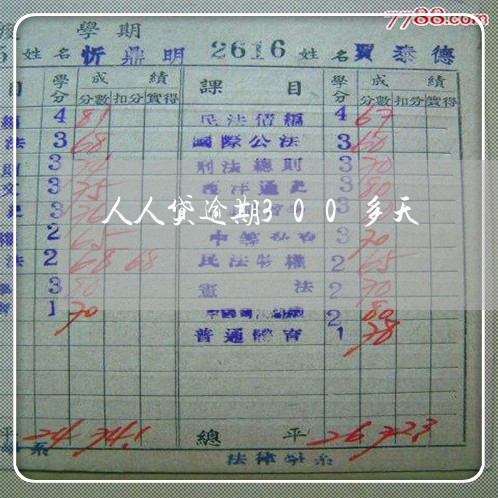 7788.com
學期
姓名 忻鼎明 2616 姓名 賈泰德
目 學分 成績 課目 學分 成績
分數 扣分 實得 分數 扣分 實得
4 81 民法債編 4 67
法 3 68 國際公法 3 60
3 刑法總則 3 70
3 75 西洋通史 3 80
人人贷逾期300多天
2 65 3 70
法 2 68 68 民法物權 2 65
3 80 憲法 2 70
1 70 2 80
普通體育 1 78
平 24 74.1 總平 26 72.3
系 法律學系